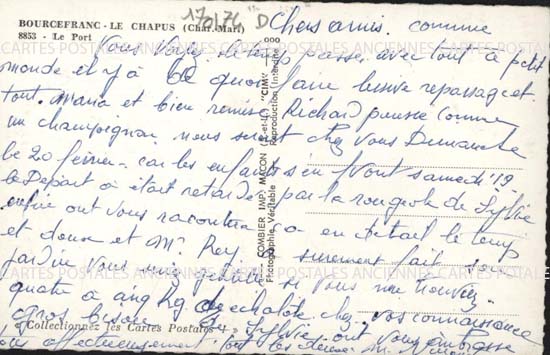 BOURCEFRANC - LE CHAPUS (Char.-Mari)
8853 - Le Port
Chers amis. comme
Vous Voyez le temps passe avec tout ce petit
monde et il y a de quoi faire lessive repassage et
tout. Maria et bien remise Richard pousse comme
un champignon nous seront chez Vous Dimanche
le 20 février car les enfants s'en Vont samedi 19.
le Depart a était retardé par la rougeole de Sylvie
enfin ont Vous racontera ça en détail le temps
et doux et Mr Rey surement fait son
jardin Vous serez gentille si vous me trouviez
quatre a cinq kg d'echalote chez vos connaissance
gros bisous de Sylvie ont Vous embrasse
affectueusement tout les deux M.
COMBIER IMP. MACON (S.-et-L.) "CIM"
Photographie Véritable - Reproduction Interdite
"Collectionnez les Cartes Postales"
CARTES POSTALES ANCIENNES